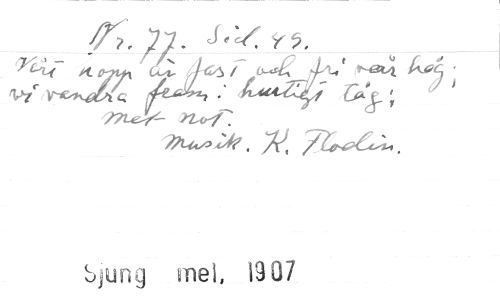 Nr. 77. Sid. 49.
Vårt hopp är fast och fri vår håg;
vi vandra fram i hurtigt tåg;
med not.
Musik. K. Flodin.
Sjung mel, 1907